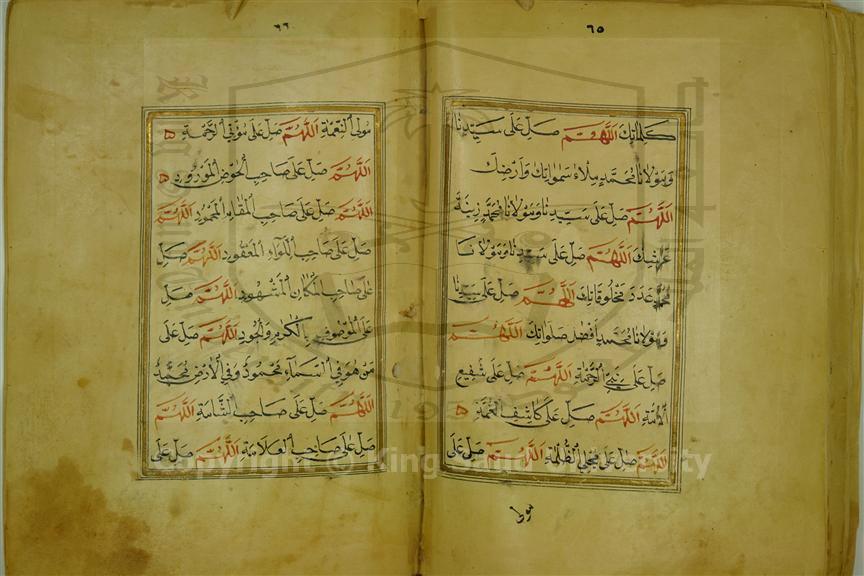 ٦٥
كلماتك اللهم صل على سيدنا
ومولانا محمد ملاء سمواتك وارضك
اللهم صل على سيدنا ومولانا محمد زينة
عرشك اللهم صل على سيدنا ومولانا
محمد عدد مخلوقاتك اللهم صل على سيدنا
ومولانا محمد بافضل صلواتك اللهم
صل على نبي الرحمة اللهم صل على شفيع
الامة اللهم صل على كاشف الغمة ۵
اللهم صل على مجلي الظلمة اللهم صل على
مولى
٦٦
مولى النعمة اللهم صل على مؤتي الرحمة ۵
اللهم صل على صاحب الحوض المورود ۵
اللهم صل على صاحب المقام المحمود اللهم
صل على صاحب اللواء المعقود اللهم صل
على صاحب المكان المشهود اللهم صل
على الموصوف بالكرم والجود اللهم صل على
من هو في السماء محمود وفي الارض محمد
اللهم صل على صاحب الشامة اللهم
صل على صاحب العلامة اللهم صل على
Copyright © King Saud University